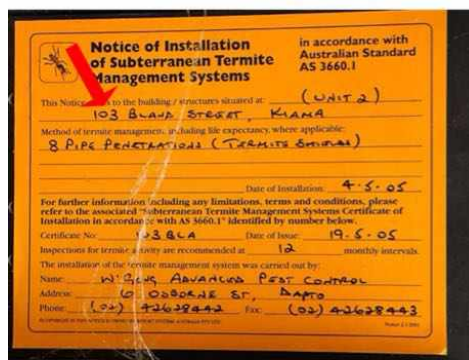 Notice of Installation
of Subterranean Termite
Management Systems
in accordance with
Australian Standard
AS 3660.1
This Notice to the building / structures situated at: (UNIT 2)
103 BLAND STREET, KIAMA
Method of termite management, including life expectancy, where applicable:
8 PIPE PENETRATIONS (TERMITE SHIELDS)
Date of Installation: 4.5.05
For further information including any limitations, terms and conditions, please
refer to the associated "Subterranean Termite Management Systems Certificate of
Installation in accordance with AS 3660.1" identified by number below.
Certificate No: 103 BLA Date of Issue: 19.5.05
Inspections for termite activity are recommended at 12 monthly intervals.
The installation of the termite management system was carried out by:
Name: ADVANCED PEST CONTROL
Address: 6 OSBORNE ST, DAPTO
Phone: (02) 42628442 Fax: (02) 42628443